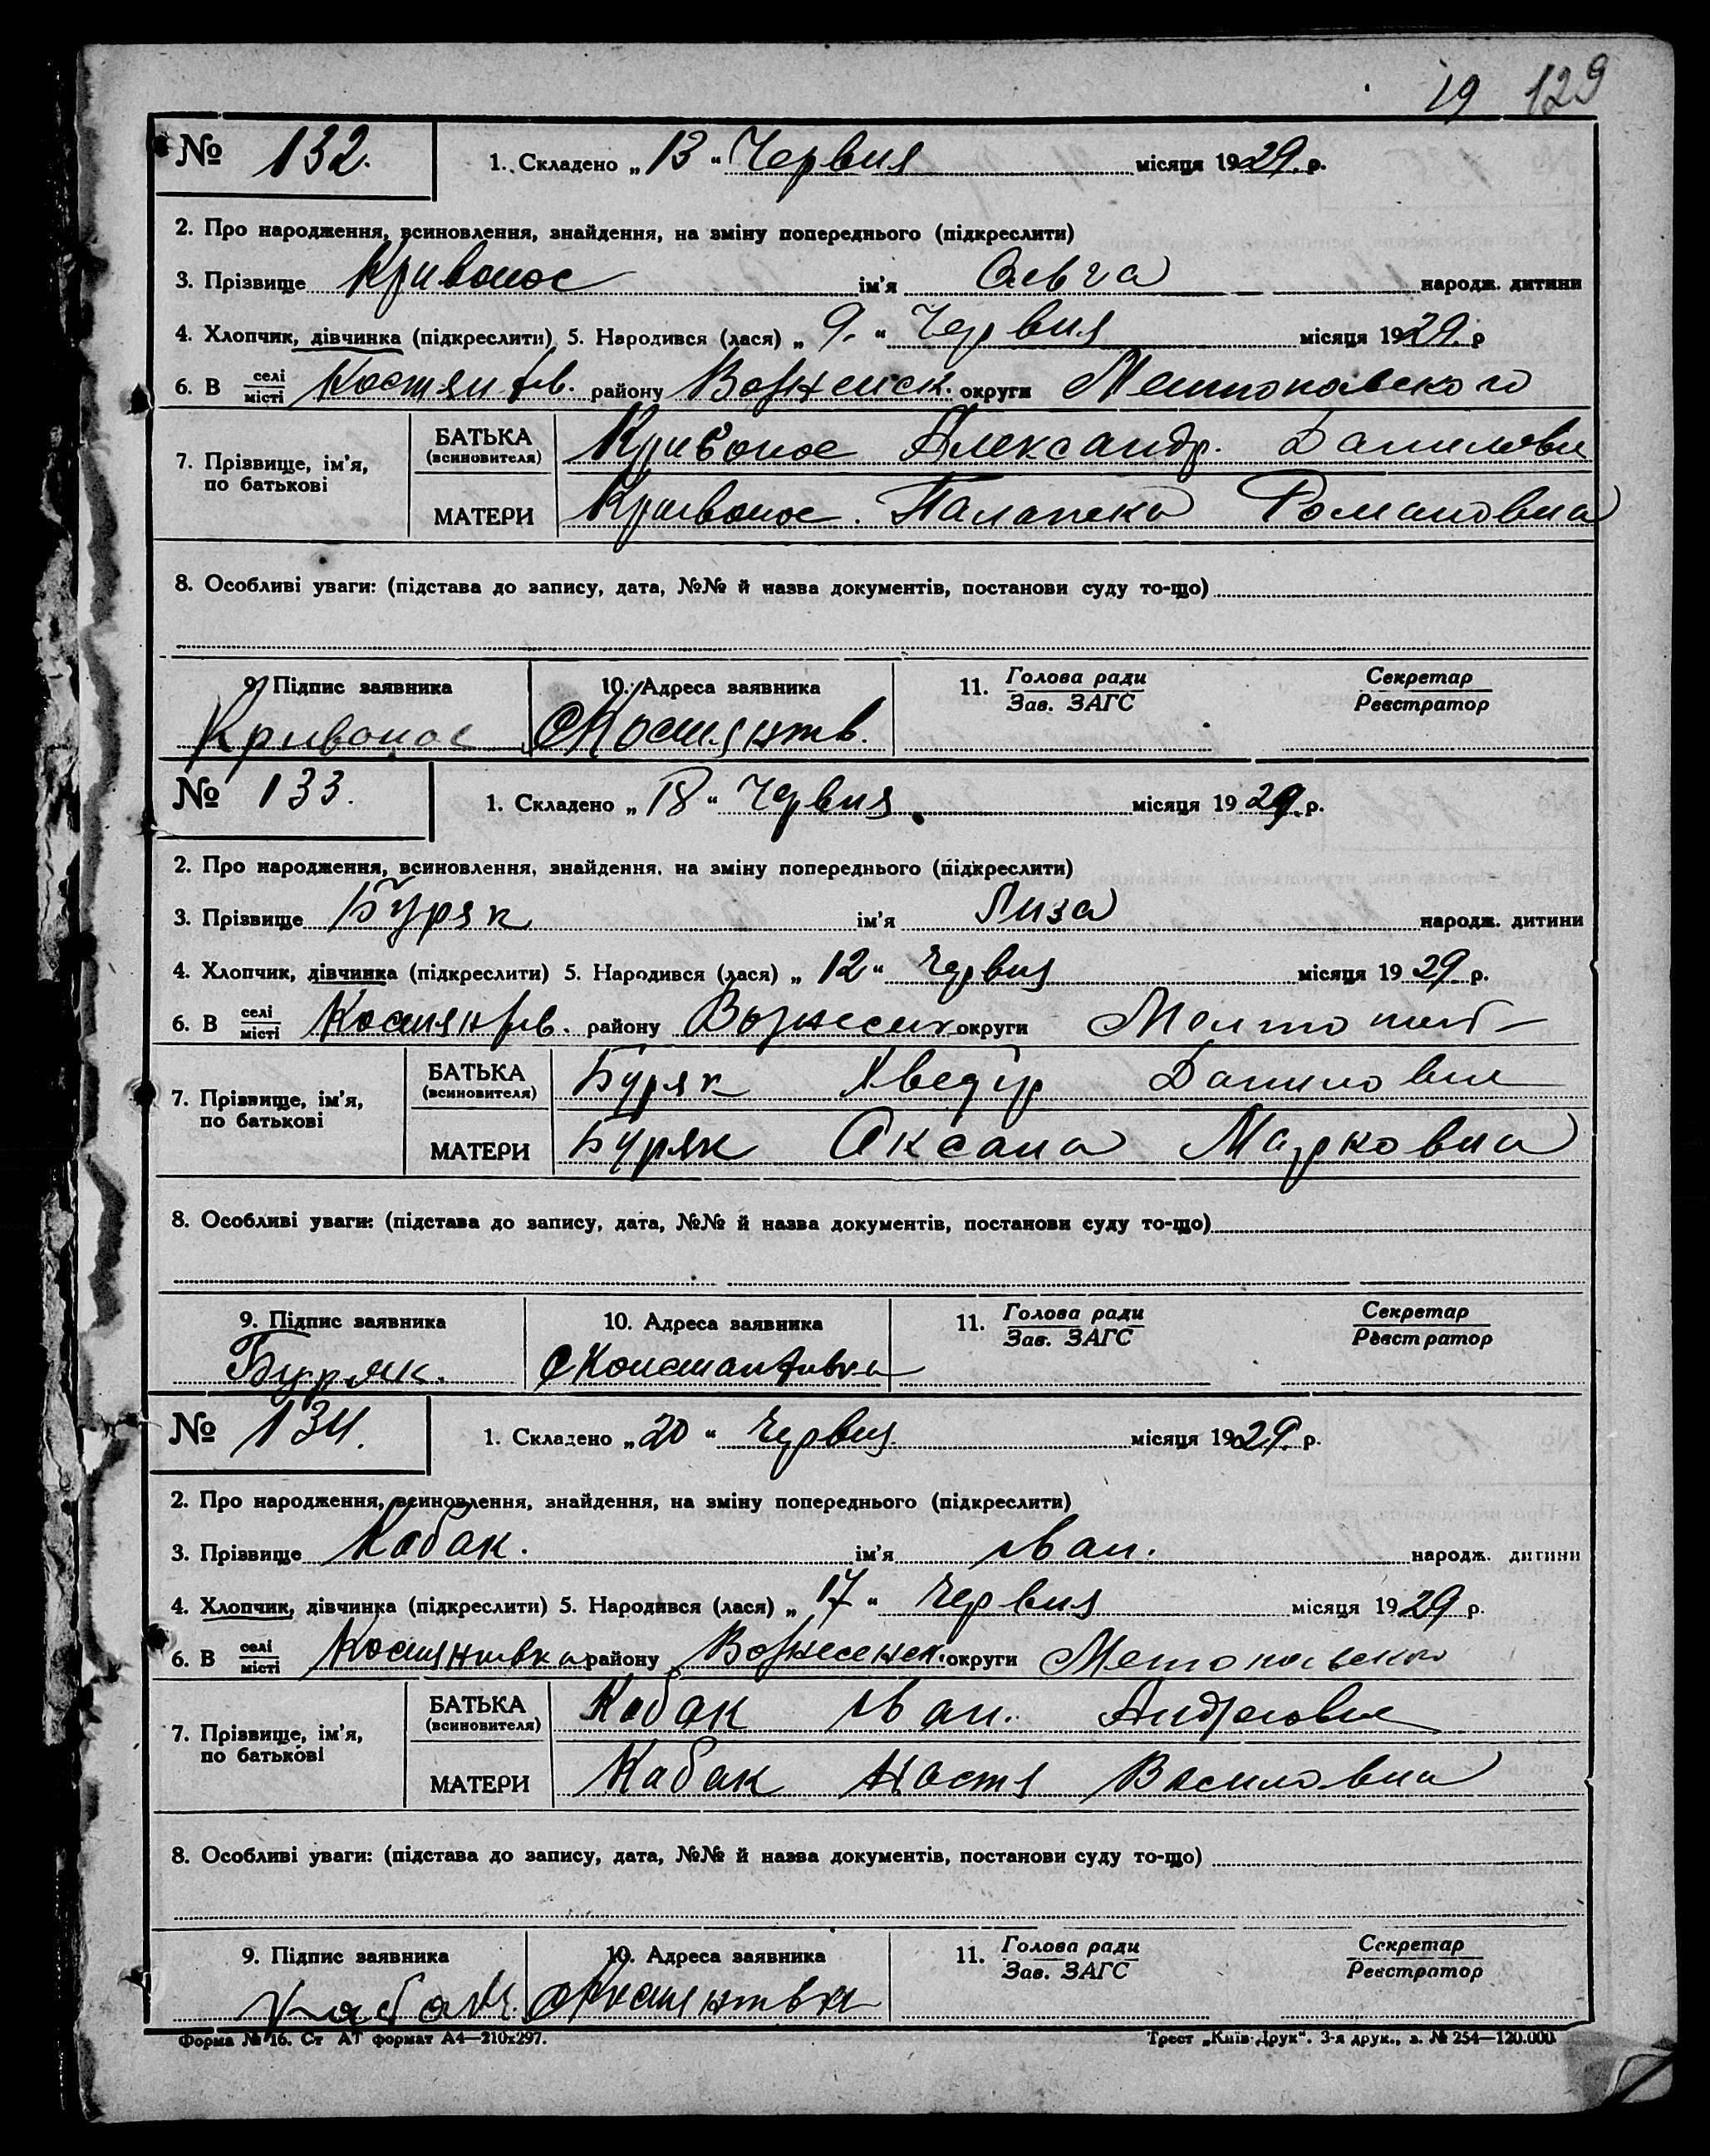 19 129
№ 132. 1. Складено „13“ Червня місяця 1929. р.
2. Про народження, всиновлення, знайдення, на зміну попереднього (підкреслити)
3. Прізвище Кривонос ім'я Ольга народж. дитини
4. Хлопчик, дівчинка (підкреслити) 5. Народився (лася) „9.“ Червня місяця 1929. р
6. В селі/місті Костянтів. району Возненськ. округи
7. Прізвище, ім'я, по батькові БАТЬКА (всиновителя) Кривонос Александр. Данилови
МАТЕРИ Кривонос. Палажка Романовна
8. Особливі уваги: (підстава до запису, дата, №№ й назва документів, постанови суду то-що)
9. Підпис заявника 10. Адреса заявника 11. Голова ради/Зав. ЗАГС Секретар/Реєстратор
Кривонос С Костянтв.
№ 133. 1. Складено „18“ Червня місяця 1929. р.
2. Про народження, всиновлення, знайдення, на зміну попереднього (підкреслити)
3. Прізвище Буряк ім'я Лиза народж. дитини
4. Хлопчик, дівчинка (підкреслити) 5. Народився (лася) „12“ Червня місяця 1929. р.
6. В селі/місті Костянтів. району Вознесен округи
7. Прізвище, ім'я, по батькові БАТЬКА (всиновителя) Буряк Хведір Данилович
МАТЕРИ Буряк Оксана Марковна
8. Особливі уваги: (підстава до запису, дата, №№ й назва документів, постанови суду то-що)
9. Підпис заявника 10. Адреса заявника 11. Голова ради/Зав. ЗАГС Секретар/Реєстратор
Буряк. С Константивка
№ 134. 1. Складено „20“ Червня місяця 1929. р.
2. Про народження, всиновлення, знайдення, на зміну попереднього (підкреслити)
3. Прізвище Кабак. ім'я Іван. народж. дитини
4. Хлопчик, дівчинка (підкреслити) 5. Народився (лася) „17“ Червня місяця 1929 р.
6. В селі/місті Костянтивка району Вознесенск. округи
7. Прізвище, ім'я, по батькові БАТЬКА (всиновителя) Кабак Іван.
МАТЕРИ Кабак Настя Василовна
8. Особливі уваги: (підстава до запису, дата, №№ й назва документів, постанови суду то-що)
9. Підпис заявника 10. Адреса заявника 11. Голова ради/Зав. ЗАГС Секретар/Реєстратор
Кабак. С Костянтвка
Форма № 16. Ст АТ формат А4—210х297. Трест „Київ-Друк“. 3-я друк., з. № 254—120.000